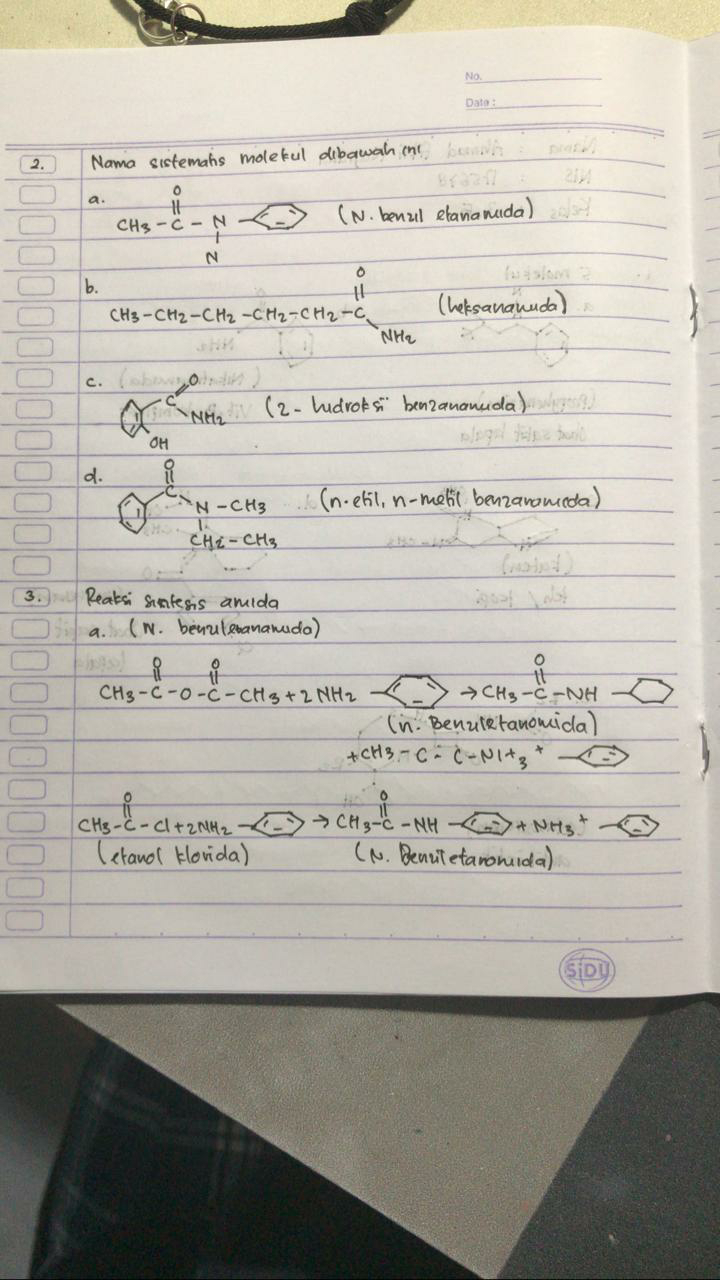 No.
Date :
2. Nama sistematis molekul dibawah ini
a.
O
CH3 - C - N - (N. benzil etanamida)
N
b.
O
CH3-CH2-CH2-CH2-CH2-C (heksanamida)
NH2
c.
O
C
NH2 (2- hidroksi benzanamida)
OH
d.
O
C
N - CH3 (n-etil, n-metil benzanamida)
CH2-CH3
3. Reaksi sintesis amida
a. (N. benziletanamida)
O O O
CH3-C-O-C-CH3+2NH2 - → CH3-C-NH -
(n. Benziletanomida)
+CH3-C-C-NH3+ -
O O
CH3-C-Cl+2NH2- → CH3-C-NH - + NH3+ -
(etanol klorida) (N. Benziletanomida)
SiDU